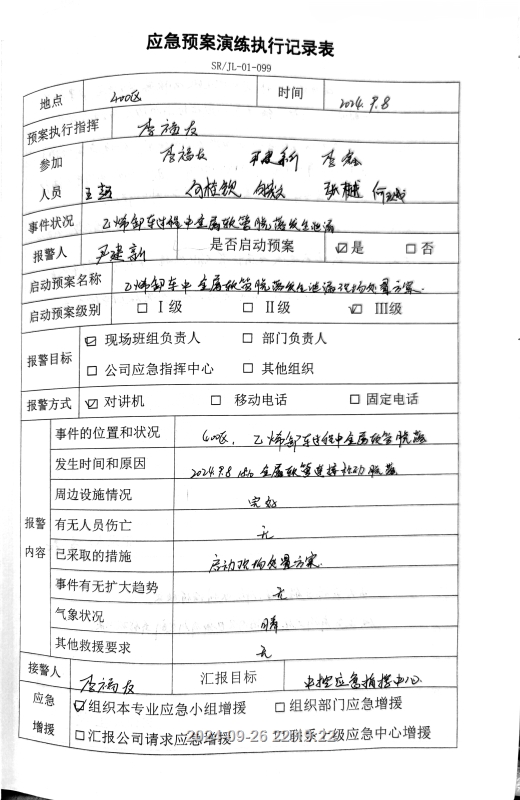 应急预案演练执行记录表
SR/JL-01-099
地点 400区 时间 2024.9.8
预案执行指挥 李福友
参加人员 李福友 李鑫
事件状况 乙烯卸车过程中金属软管脱落发生泄漏
报警人 尹建新 是否启动预案 ☑是 □否
启动预案名称 乙烯卸车中金属软管脱落发生泄漏现场处置方案.
启动预案级别 □ I级 □ II级 ☑ III级
报警目标 ☑ 现场班组负责人 □ 部门负责人
□ 公司应急指挥中心 □ 其他组织
报警方式 ☑ 对讲机 □ 移动电话 □ 固定电话
报警内容
事件的位置和状况 400区，乙烯卸车过程中金属软管脱落
发生时间和原因 2024.9.8 金属软管连接松动脱落
周边设施情况 完好
有无人员伤亡 无
已采取的措施 启动现场处置方案.
事件有无扩大趋势 无
气象状况 晴
其他救援要求 无
接警人 李福友 汇报目标 中控应急指挥中心
应急增援 ☑组织本专业应急小组增援 □组织部门应急增援
□汇报公司请求应急增援 □联系上级应急中心增援
2024-09-26 22:15:22